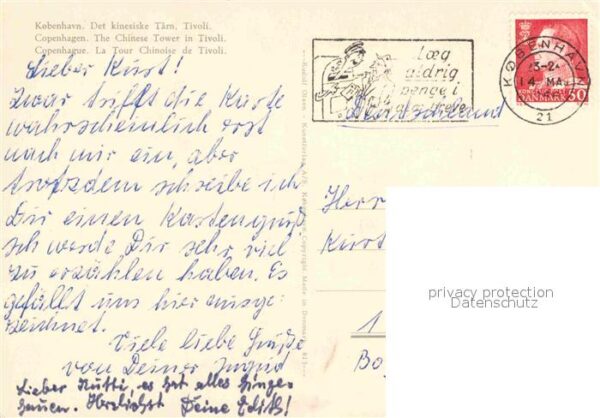 København. Det kinesiske Tårn, Tivoli.
Copenhagen. The Chinese Tower in Tivoli.
Copenhague. La Tour Chinoise de Tivoli.
Lieber Kurt!
Zwar trifft die Karte
wahrscheinlich erst
nach mir ein, aber
trotzdem schreibe ich
Dir einen Kartengruß
Ich werde Dir sehr viel
zu erzählen haben. Es
gefällt uns hier ausge-
zeichnet.
Viele liebe Grüße
von Deiner Ingrid
Lieber Kutti, es hat alles
hauen. Herzlichst Deine Edith!
Rudolf Olsen - Kunstforlag A/S
Copyright Made in Denmark
Læg
aldrig
penge i
KØBENHAVN
14 MAJ
21
DANMARK 50
Deutschland
Herr
Kurt
1
privacy protection
Datenschutz